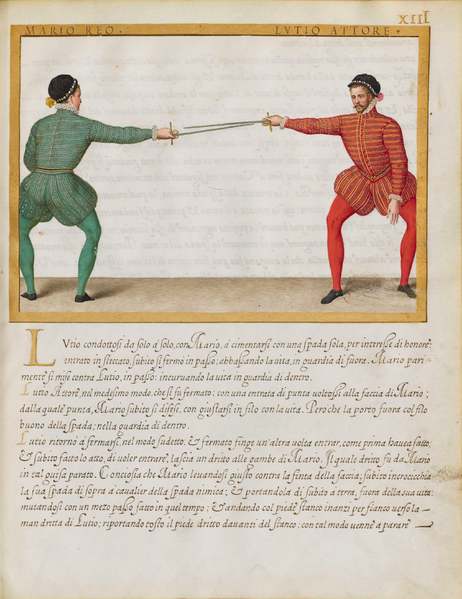 XIII
MARIO REO.
LVTIO ATTORE.
LVtio condottosi da solo à solo, con Mario, à cimentarsi con una spada sola, per interesse di honore:
entrato in steccato, subito si fermò in passo, abbassando la vita, in guardia di fuora. Mario pari-
mente si mise contra Lutio, in passo: incuruando la vita in guardia di dentro.
Lutio Attore, nel medesimo modo, che si fu fermato; con una entrata di punta voltossi alla faccia di Mario;
dalla quale punta, Mario subito si difese, con giustarsi in filo con la vita. Però che la portò fuora col filo
buono della spada; nella guardia di dentro.
Lutio ritornò à fermarsi, nel modo sudetto, & fermato finge un'altra volta entrar, come prima hauea fatto;
& subito fatto lo atto, di voler entrare, lascia un dritto alle gambe di Mario. Il quale dritto fu da Mario
in tal guisa parato. Conciosia che Mario leuandosi giusto contra la finta della faccia; subito incrocicchia
la sua spada di sopra à caualier della spada nimica; & portandola di subito à terra, fuora della sua vita:
mutandosi con un mezo passo fatto in quel tempo; & andando col piede stanco inanzi per fianco verso la
man dritta di Lutio; riportando tosto il piede dritto dauanti del stanco: con tal modo venne à parare